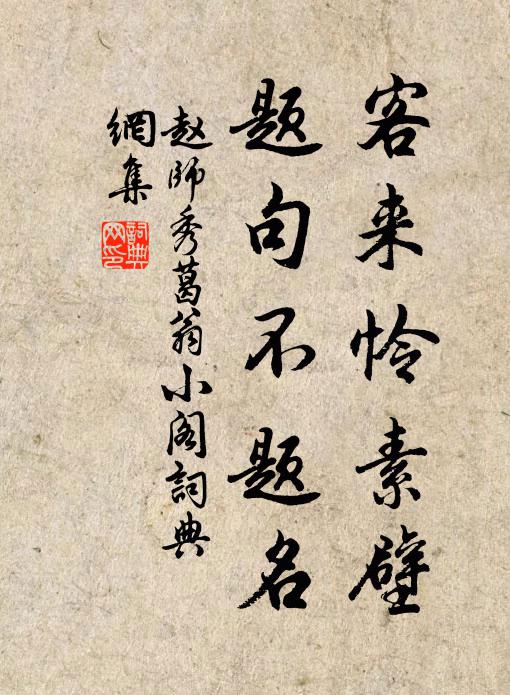 客来怜素壁
题句不题名
赵師秀葛翁小阁詞典
網集
詞典
网印